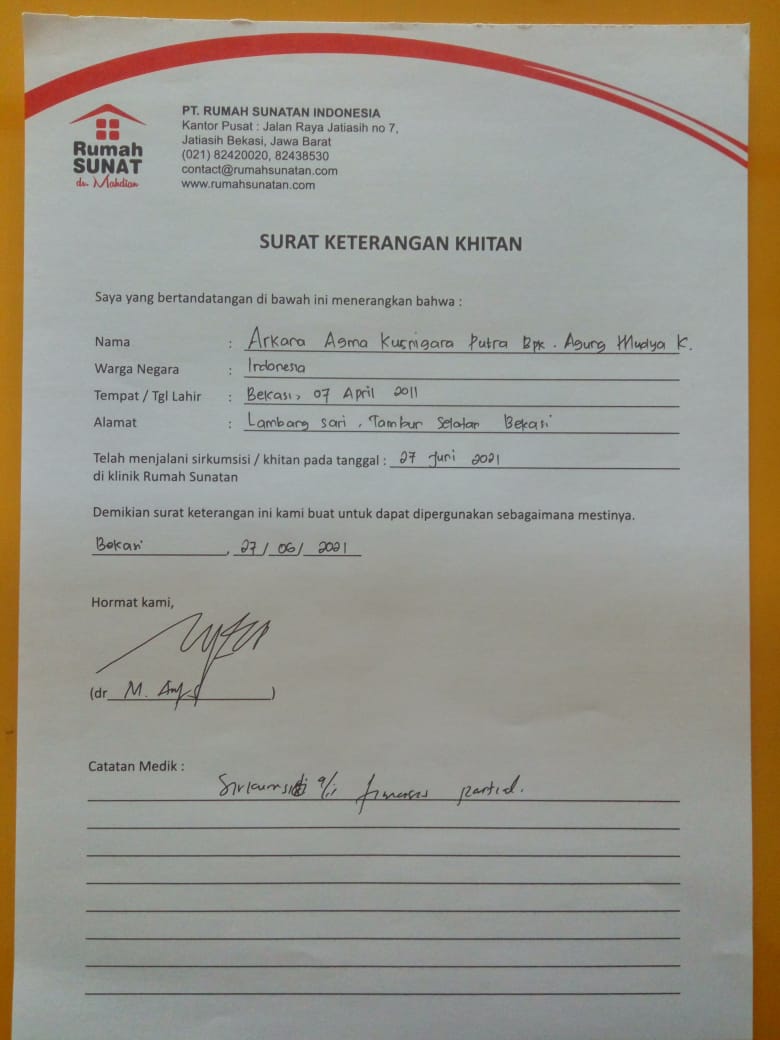 Rumah
SUNAT
dr. Mahdian
PT. RUMAH SUNATAN INDONESIA
Kantor Pusat : Jalan Raya Jatiasih no 7,
Jatiasih Bekasi, Jawa Barat
(021) 82420020, 82438530
contact@rumahsunatan.com
www.rumahsunatan.com
SURAT KETERANGAN KHITAN
Saya yang bertandatangan di bawah ini menerangkan bahwa :
Nama : Arkara Agma Kusnigara Putra Bpk. Agung Mudya K.
Warga Negara : Indonesia
Tempat / Tgl Lahir : Bekasi, 07 April 2011
Alamat : Lambang sari, Tambun Selatan Bekasi
Telah menjalani sirkumsisi / khitan pada tanggal : 27 Juni 2021
di klinik Rumah Sunatan
Demikian surat keterangan ini kami buat untuk dapat dipergunakan sebagaimana mestinya.
Bekasi, 27/06/2021
Hormat kami,
(dr M. )
Catatan Medik :
Sirkumsisi partial.